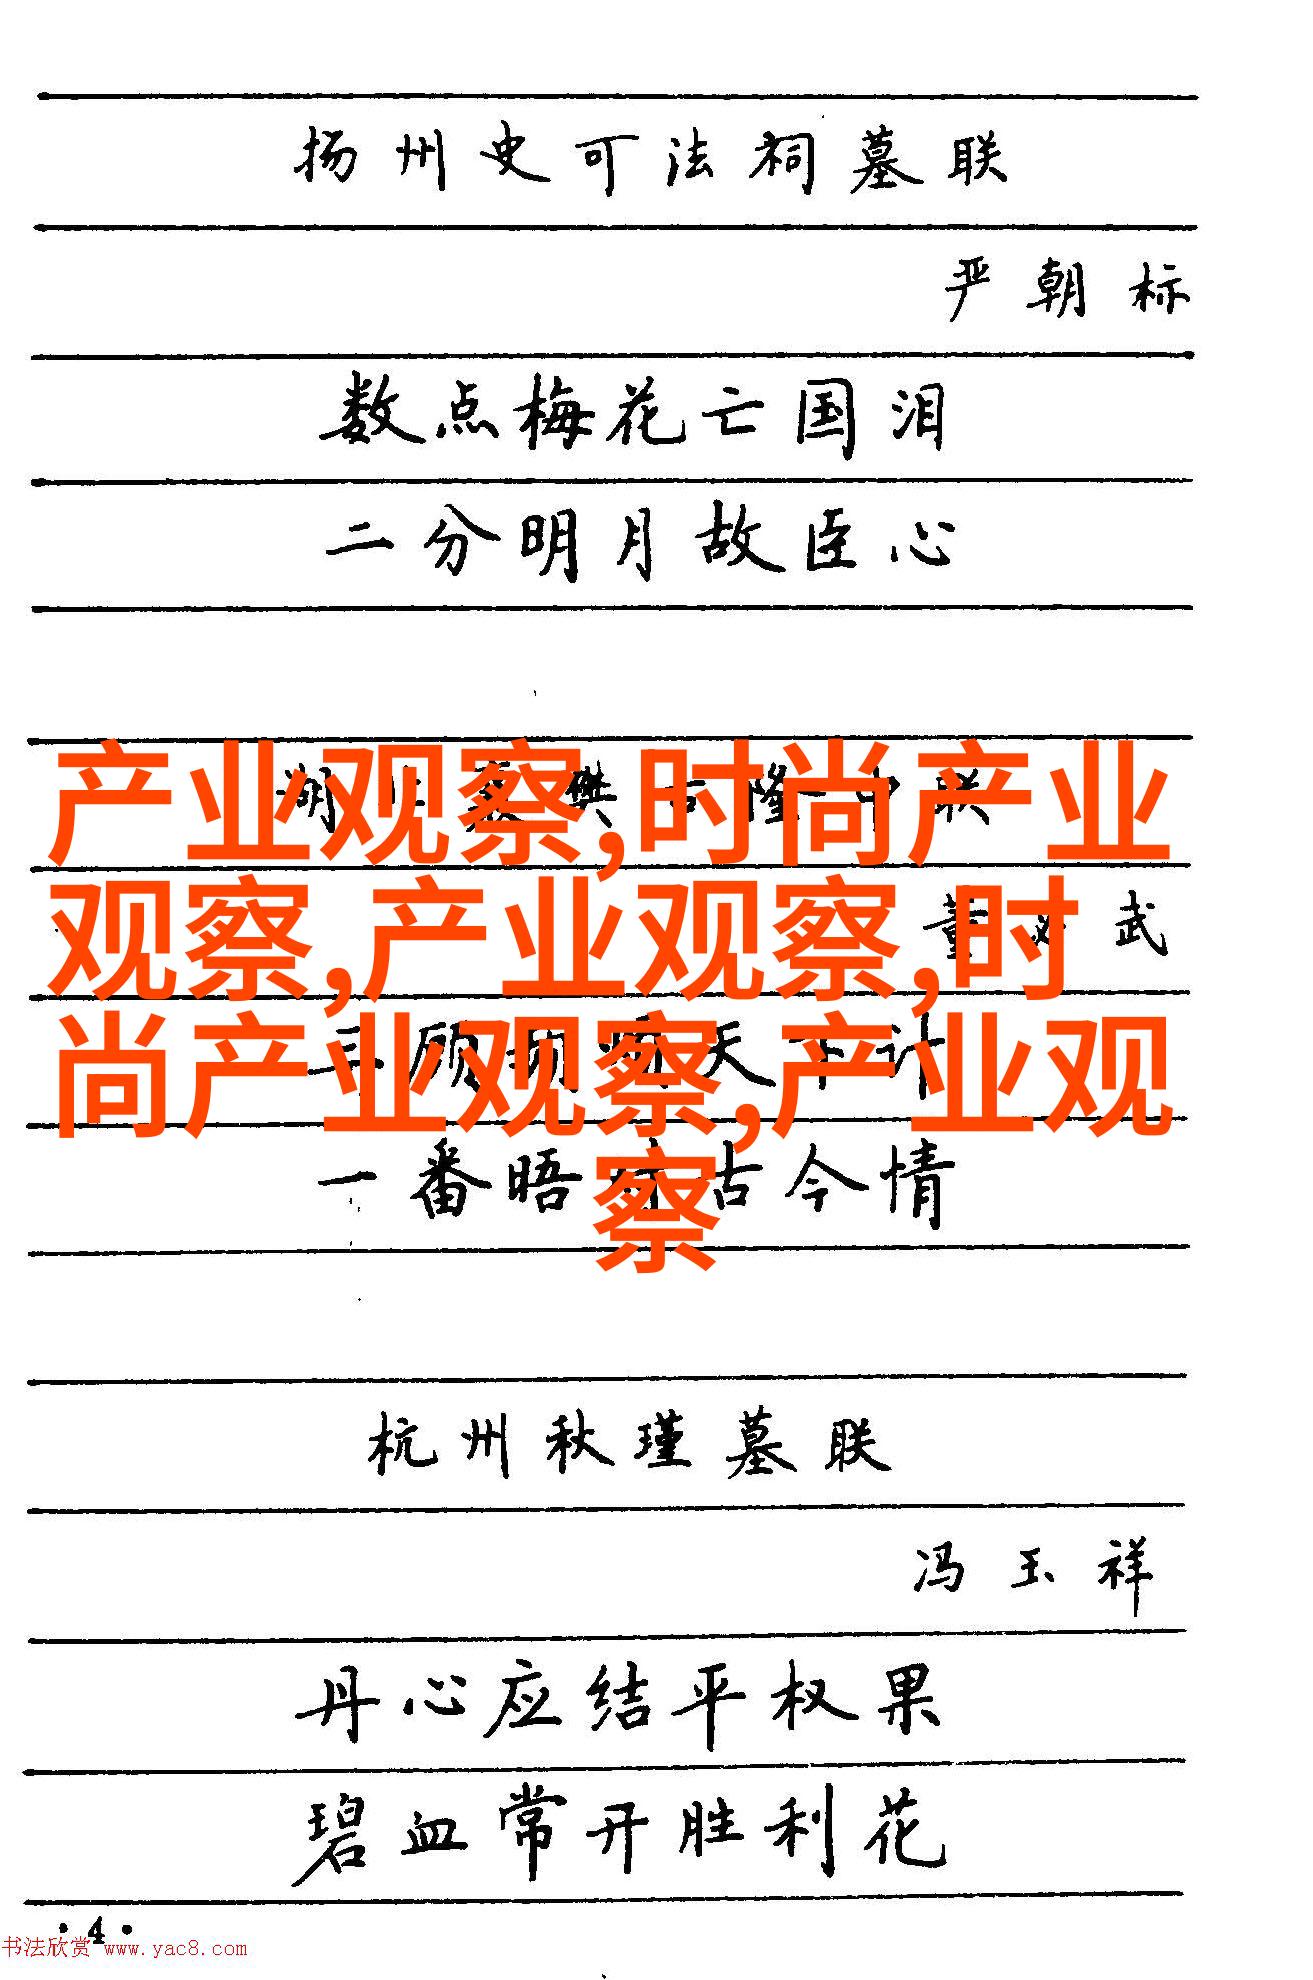 扬州史可法祠墓联
严朝标
数点梅花亡国泪
二分明月故臣心
产业观察,时尚产业
观察,产业观察,时
尚产业观察,产业观
察
武
天下计
一番晤对古今情
杭州秋瑾墓联
冯玉祥
丹心应结平权果
碧血常开胜利花
·4·
书法欣赏 www.yac8.com